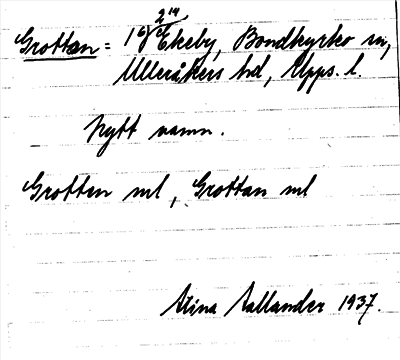 Grottan = 16 2¹⁴ Ekeby, Bondkyrko sn,
Ulleråkers hd, Upps. l.
Nytt namn.
Grotten ml, Grottan ml
Stina Sallander 1937.